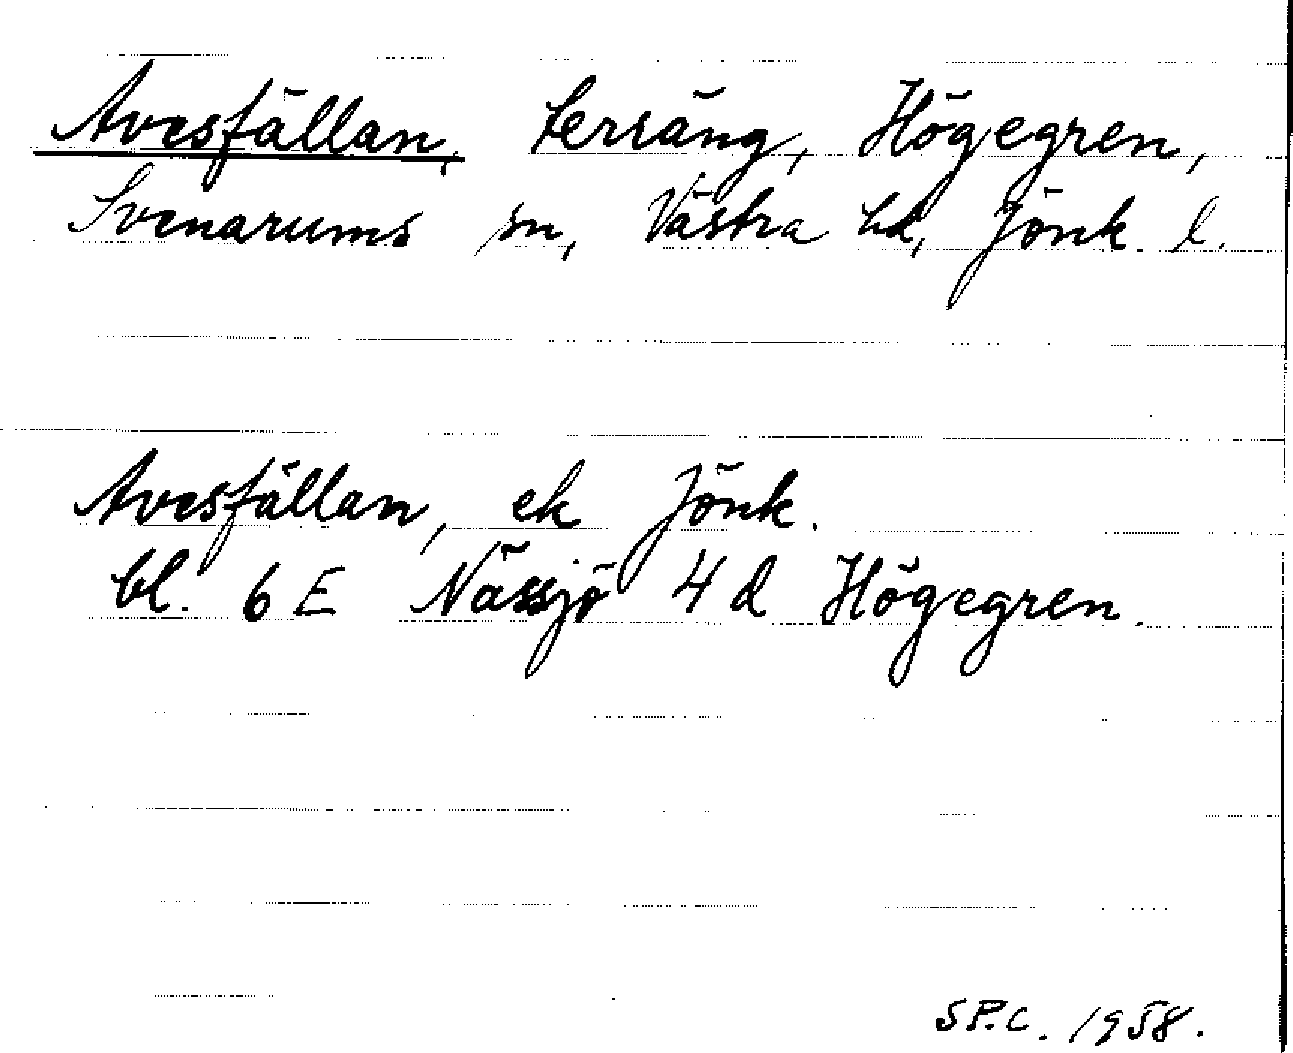 Avesfällan, terräng, Högegren,
Svenarums sn, Västra hd, Jönk. l.
Avesfällan, ek Jönk.
bl. 6 E Nässjö 4 d Högegren.
SP.C. 1958.